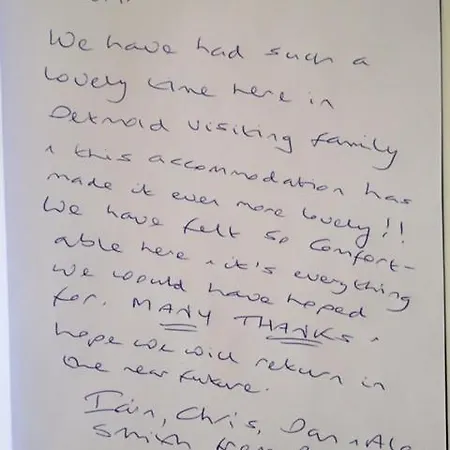 We have had such a
lovely time here in
Detmold visiting family
+ this accommodation has
made it even more lovely!!
We have felt so comfort-
able here + it's everything
we would have hoped
for. MANY THANKS +
hope we will return in
the near future.
Iain, Chris, Dan + Ale
Smith from